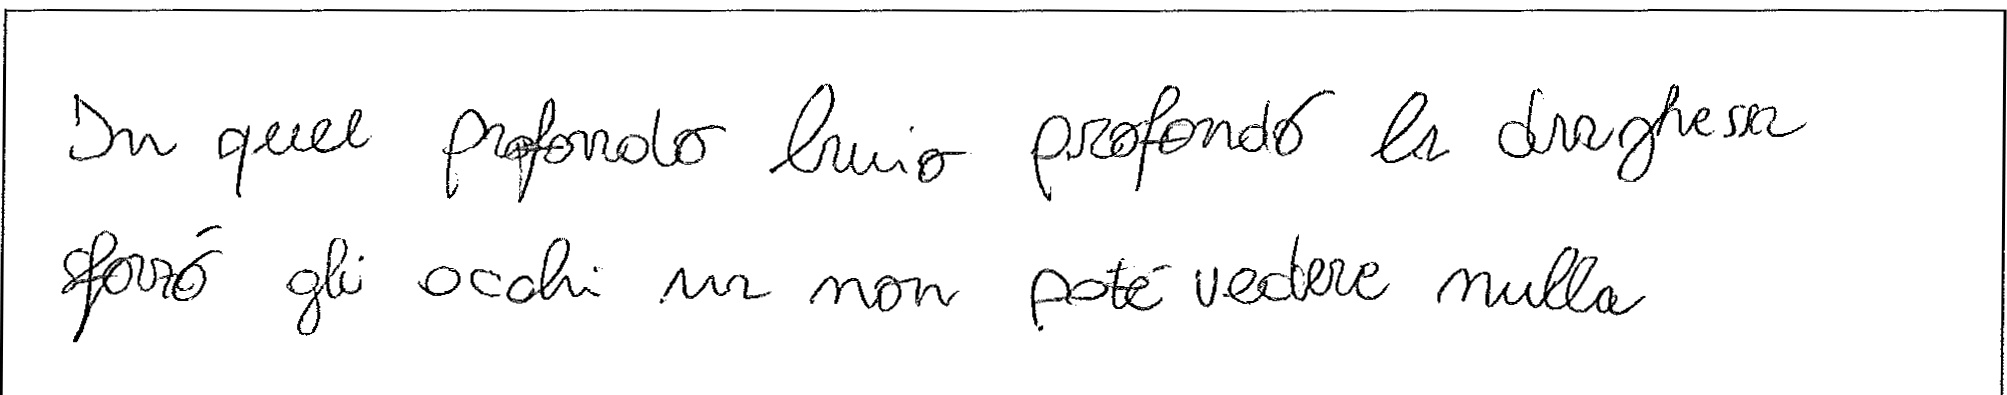 In quel profondo buio profondo la draghessa
sforzò gli occhi ma non poté vedere nulla